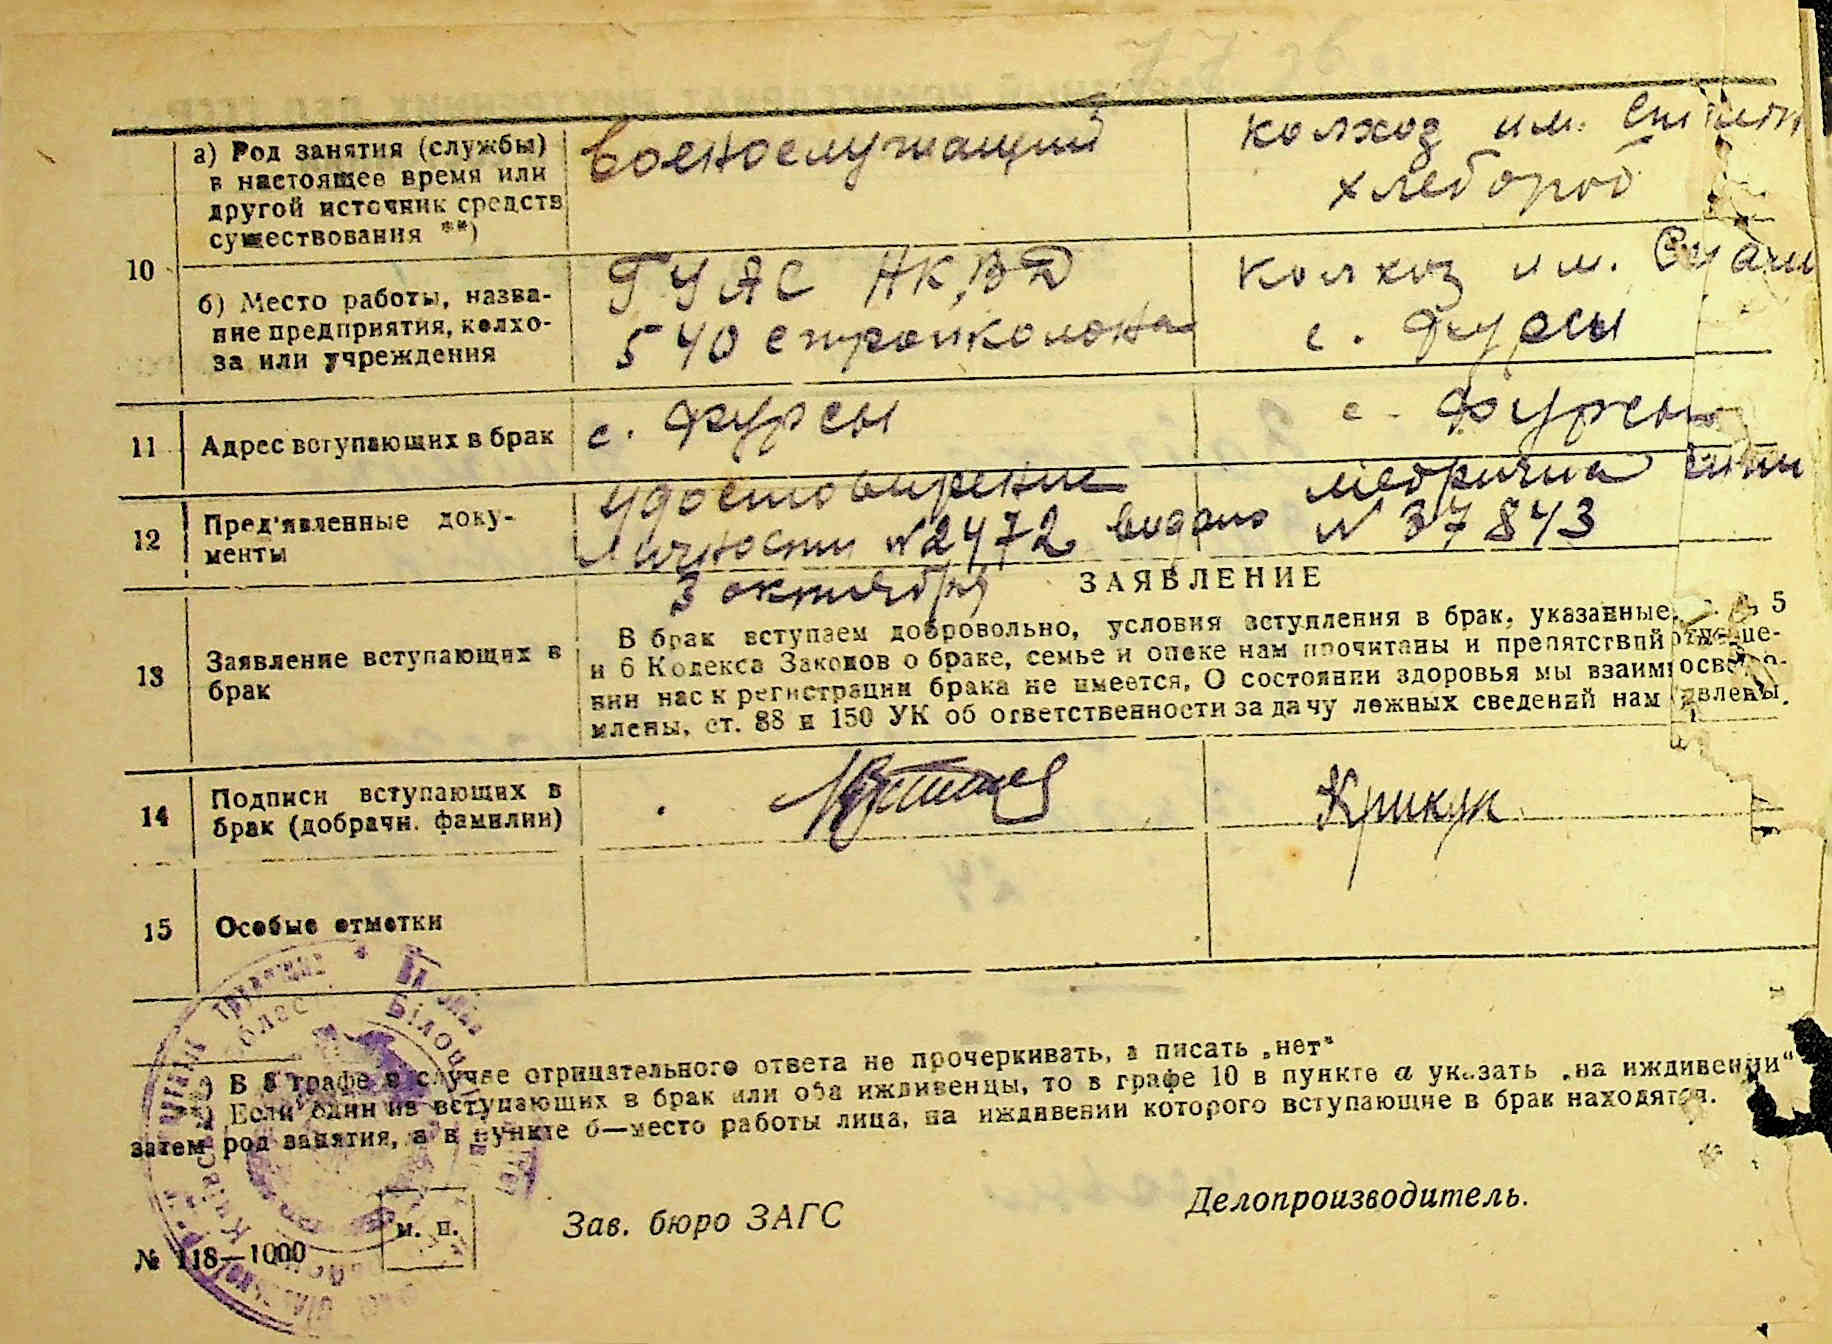 а) Род занятия (службы)
в настоящее время или
другой источник средств
существования **)
Военослужащий
колхоз им.
хлебороб
10
б) Место работы, назва-
ние предприятия, колхо-
за или учреждения
ГУАС НКВД
540 стройколона
колхоз им.
с. Фурсы
11
Адрес вступающих в брак
с. Фурсы
с. Фурсы
12
Пред'явленные доку-
менты
удостовирение
Личности №2472 видано
3 октября
метрична
№ 37843
13
Заявление вступающих в
брак
ЗАЯВЛЕНИЕ
В брак вступаем добровольно, условия вступления в брак, указанные 5
и 6 Кодекса Законов о браке, семье и опеке нам прочитаны и препятствий отноше-
нии нас к регистрации брака не имеется. О состоянии здоровья мы взаимно осведо-
млены, ст. 88 и 150 УК об ответственности за дачу ложных сведений нам явлены.
14
Подписи вступающих в
брак (добрачн. фамилии)
Крикун
15
Особые отметки
*) В 8 графе в случае отрицательного ответа не прочеркивать, а писать „нет“
**) Если один из вступающих в брак или оба иждивенцы, то в графе 10 в пункте а указать „на иждивении“
затем род занятия, а в пункте б—место работы лица, на иждивении которого вступающие в брак находятся.
М. П.
Зав. бюро ЗАГС
Делопроизводитель.
№ 118—1000